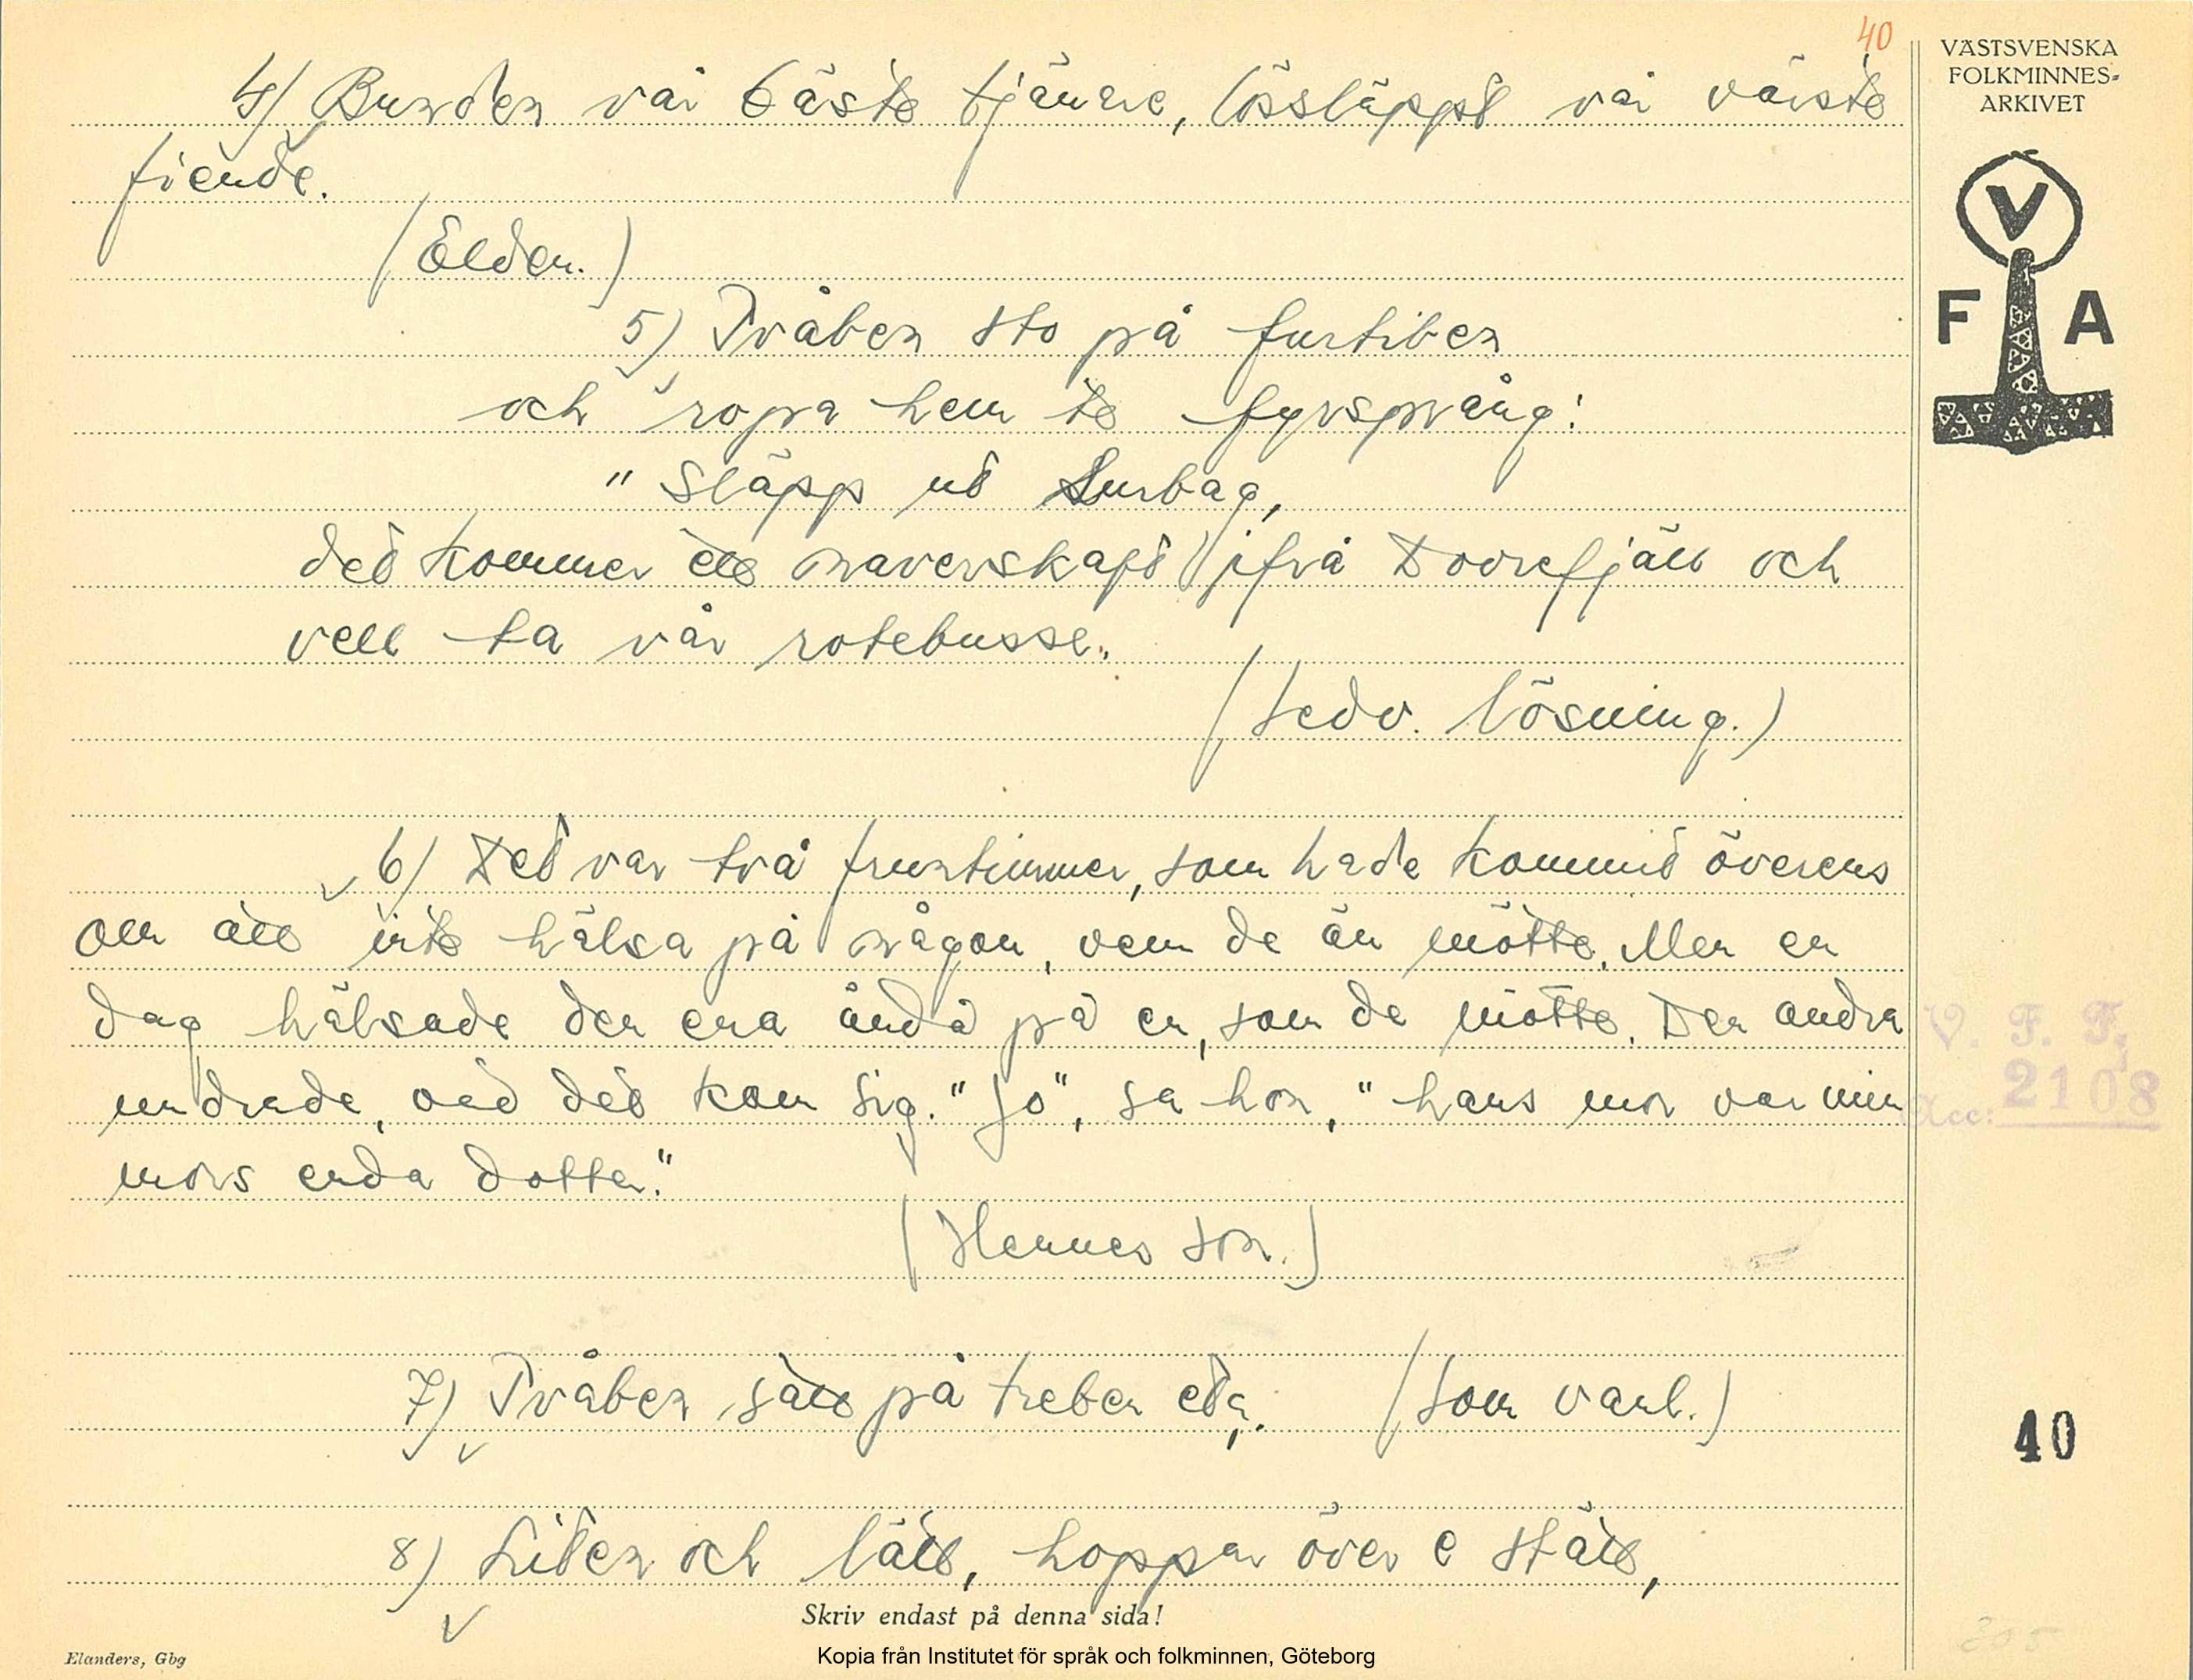 40
VÄSTSVENSKA
FOLKMINNES-
ARKIVET
V
F A
4) Bunden vår bäste tjänare, lössläppt vår värste
fiende.
(Elden.)
5) Tvåben sto på furtiben
och ropa hem te fyrsprång:
"Släpp ut Lurbag,
det kommer ett naverskaft ifrå Dovrefjäll och
vell ta vår rotebusse."
(Sedv. lösning.)
6) Det var två fruntimmer, som hade kommit överens
om att inte hälsa på någon, vem de än mötte. Men en
dag hälsade den ena ändå på en, som de mötte. Den andra
undrade, vad det kom sig. "Jo", sa hon, "hans mor var min
mors enda dotter."
(Hennes son.)
V. F. F.
Acc: 2108
7) Tvåben satt på treben etc. (Som vanl.)
40
8) Liten och lätt, hoppar över e slätt,
Skriv endast på denna sida!
Elanders, Gbg
Kopia från Institutet för språk och folkminnen, Göteborg